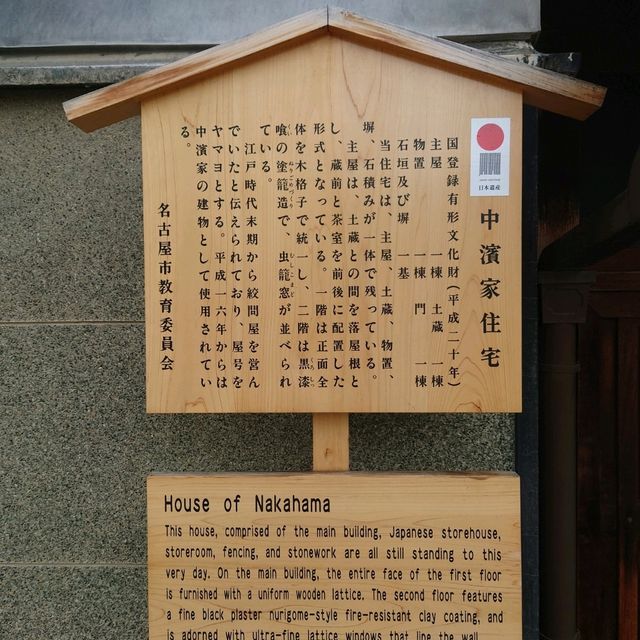 日本遺産
中濱家住宅
国登録有形文化財(平成二十年)
主屋 一棟 土蔵 一棟
物置 一棟 門 一棟
石垣及び塀 一基
当住宅は、主屋、土蔵、物置、
塀、石積みが一体で残っている。
主屋は、土蔵との間を落屋根と
し、蔵前と茶室を前後に配置した
形式となっている。一階は正面全
体を木格子で統一し、二階は黒漆
喰の塗籠造で、虫籠窓が並べられ
ている。
江戸時代末期から絞問屋を営ん
でいたと伝えられており、屋号を
ヤマヨとする。平成一六年からは
中濱家の建物として使用されてい
る。
名古屋市教育委員会
House of Nakahama
This house, comprised of the main building, Japanese storehouse,
storeroom, fencing, and stonework are all still standing to this
very day. On the main building, the entire face of the first floor
is furnished with a uniform wooden lattice. The second floor features
a fine black plaster nurigome-style fire-resistant clay coating, and
is adorned with ultra-fine lattice windows that line the wall.